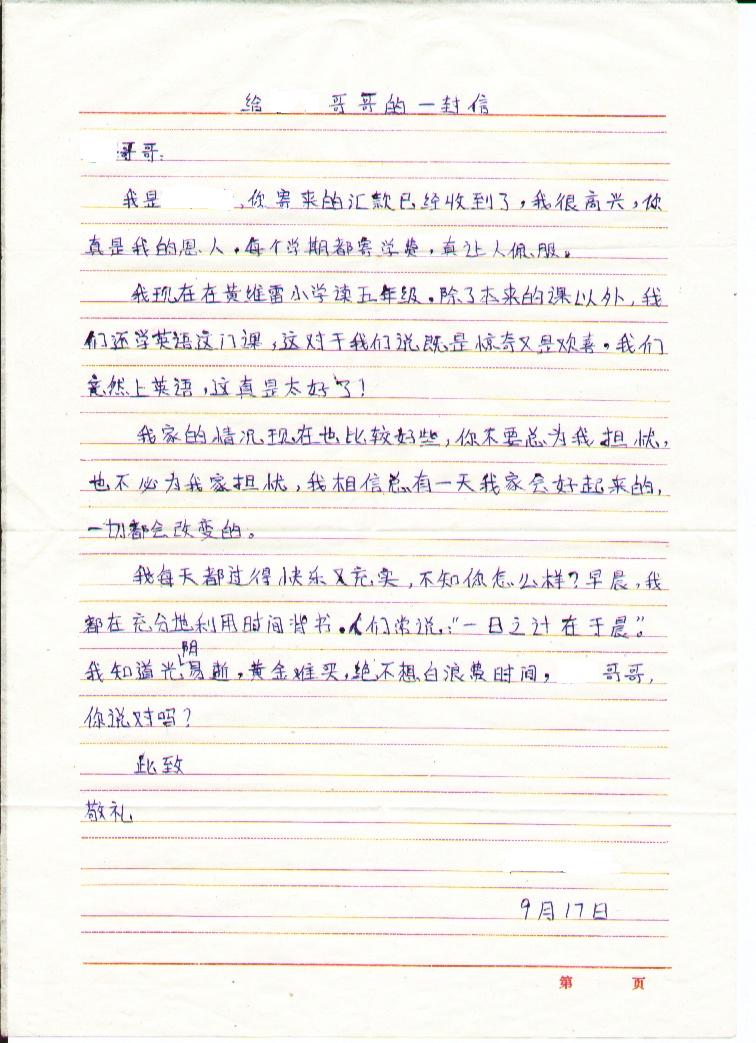 给 哥哥的一封信
哥哥:
我是 ,你寄来的汇款已经收到了,我很高兴,你
真是我的恩人。每个学期都寄学费,真让人佩服。
我现在在黄维雷小学读五年级。除了本来的课以外,我
们还学英语这门课,这对于我们说既是惊奇又是欢喜。我们
竟然上英语,这真是太好了!
我家的情况现在也比较好些,你不要总为我担忧,
也不必为我家担忧,我相信总有一天我家会好起来的,
一切都会改变的。
我每天都过得快乐又充实,不知你怎么样?早晨,我
都在充分地利用时间背书。人们常说:“一日之计在于晨”。
我知道光阴易逝,黄金难买,绝不想白浪费时间, 哥哥,
你说对吗?
此致
敬礼
9月17日
第 页